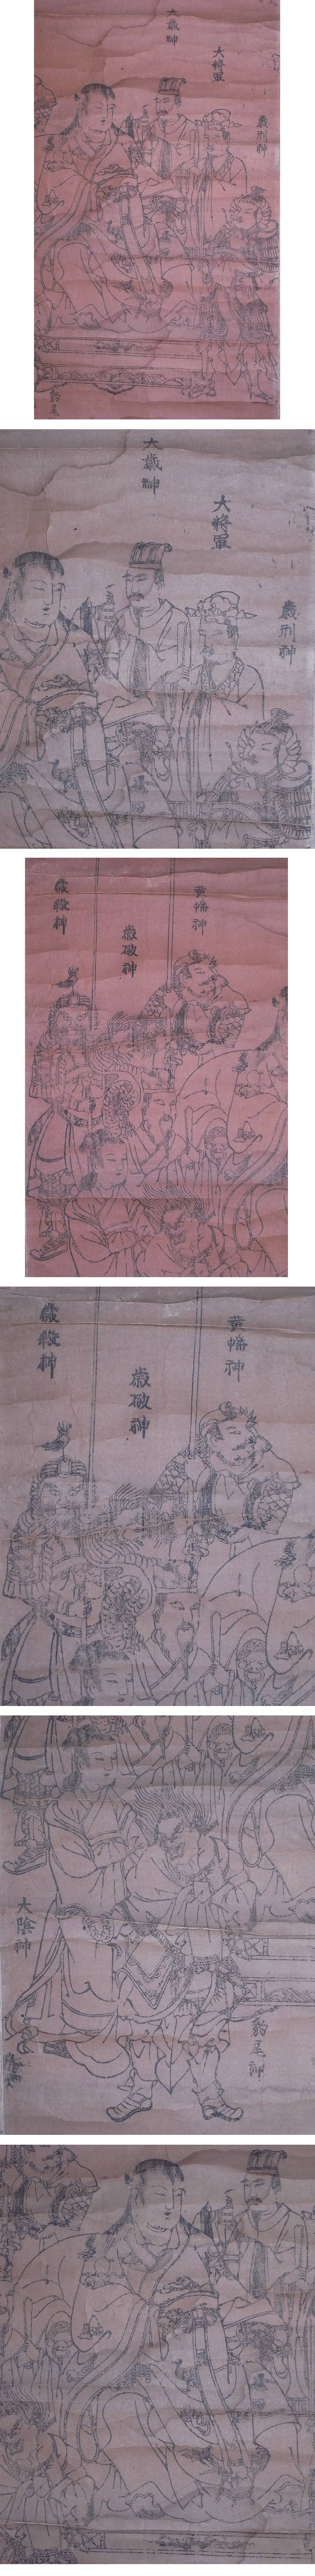 大歳神
大将軍
歳刑神
豹尾
大歳神
大将軍
歳刑神
歳殺神
歳破神
黄幡神
歳殺神
歳破神
黄幡神
大陰神
豹尾神